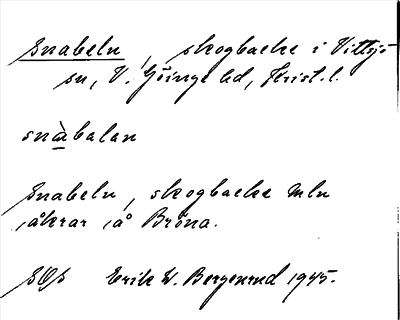 Snabeln, skogbacke i Vittsjö
sn, V. Göinge hd, Krist. l.
snàbalan
Snabeln, skogbacke mln
åkrar å Bröna.
SOS Erik W. Bergenrud 1945.